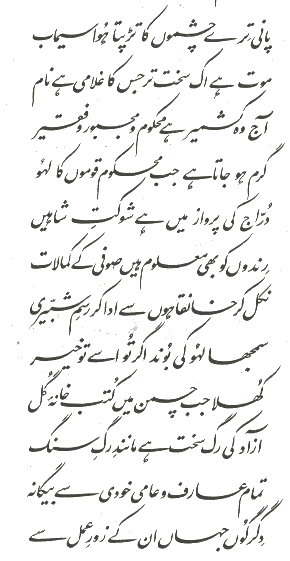 پانی ترے چشموں کا تڑپتا ہوا سیماب
موت ہے اک سخت تر جس کا غلامی ہے نام
آج وہ کشمیر ہے محکوم و مجبور و فقیر
گرم ہو جاتا ہے جب محکوم قوموں کا لہُو
دُرّاج کی پرواز میں ہے شوکتِ شاہیں
رِندوں کو بھی معلوم ہیں صوفی کے کمالات
نکل کر خانقاہوں سے ادا کر رسمِ شبیّری
سمجھا لہُو کی بُوند اگر تُو اسے تو خیر
کُھلا جب چمن میں کُتب خانۂ گل
آزاد کی رگ سخت ہے مانندِ رگِ سنگ
تمام عارف و عامی خودی سے بیگانہ
دِگرگُوں جہاں ان کے زورِ عمل سے